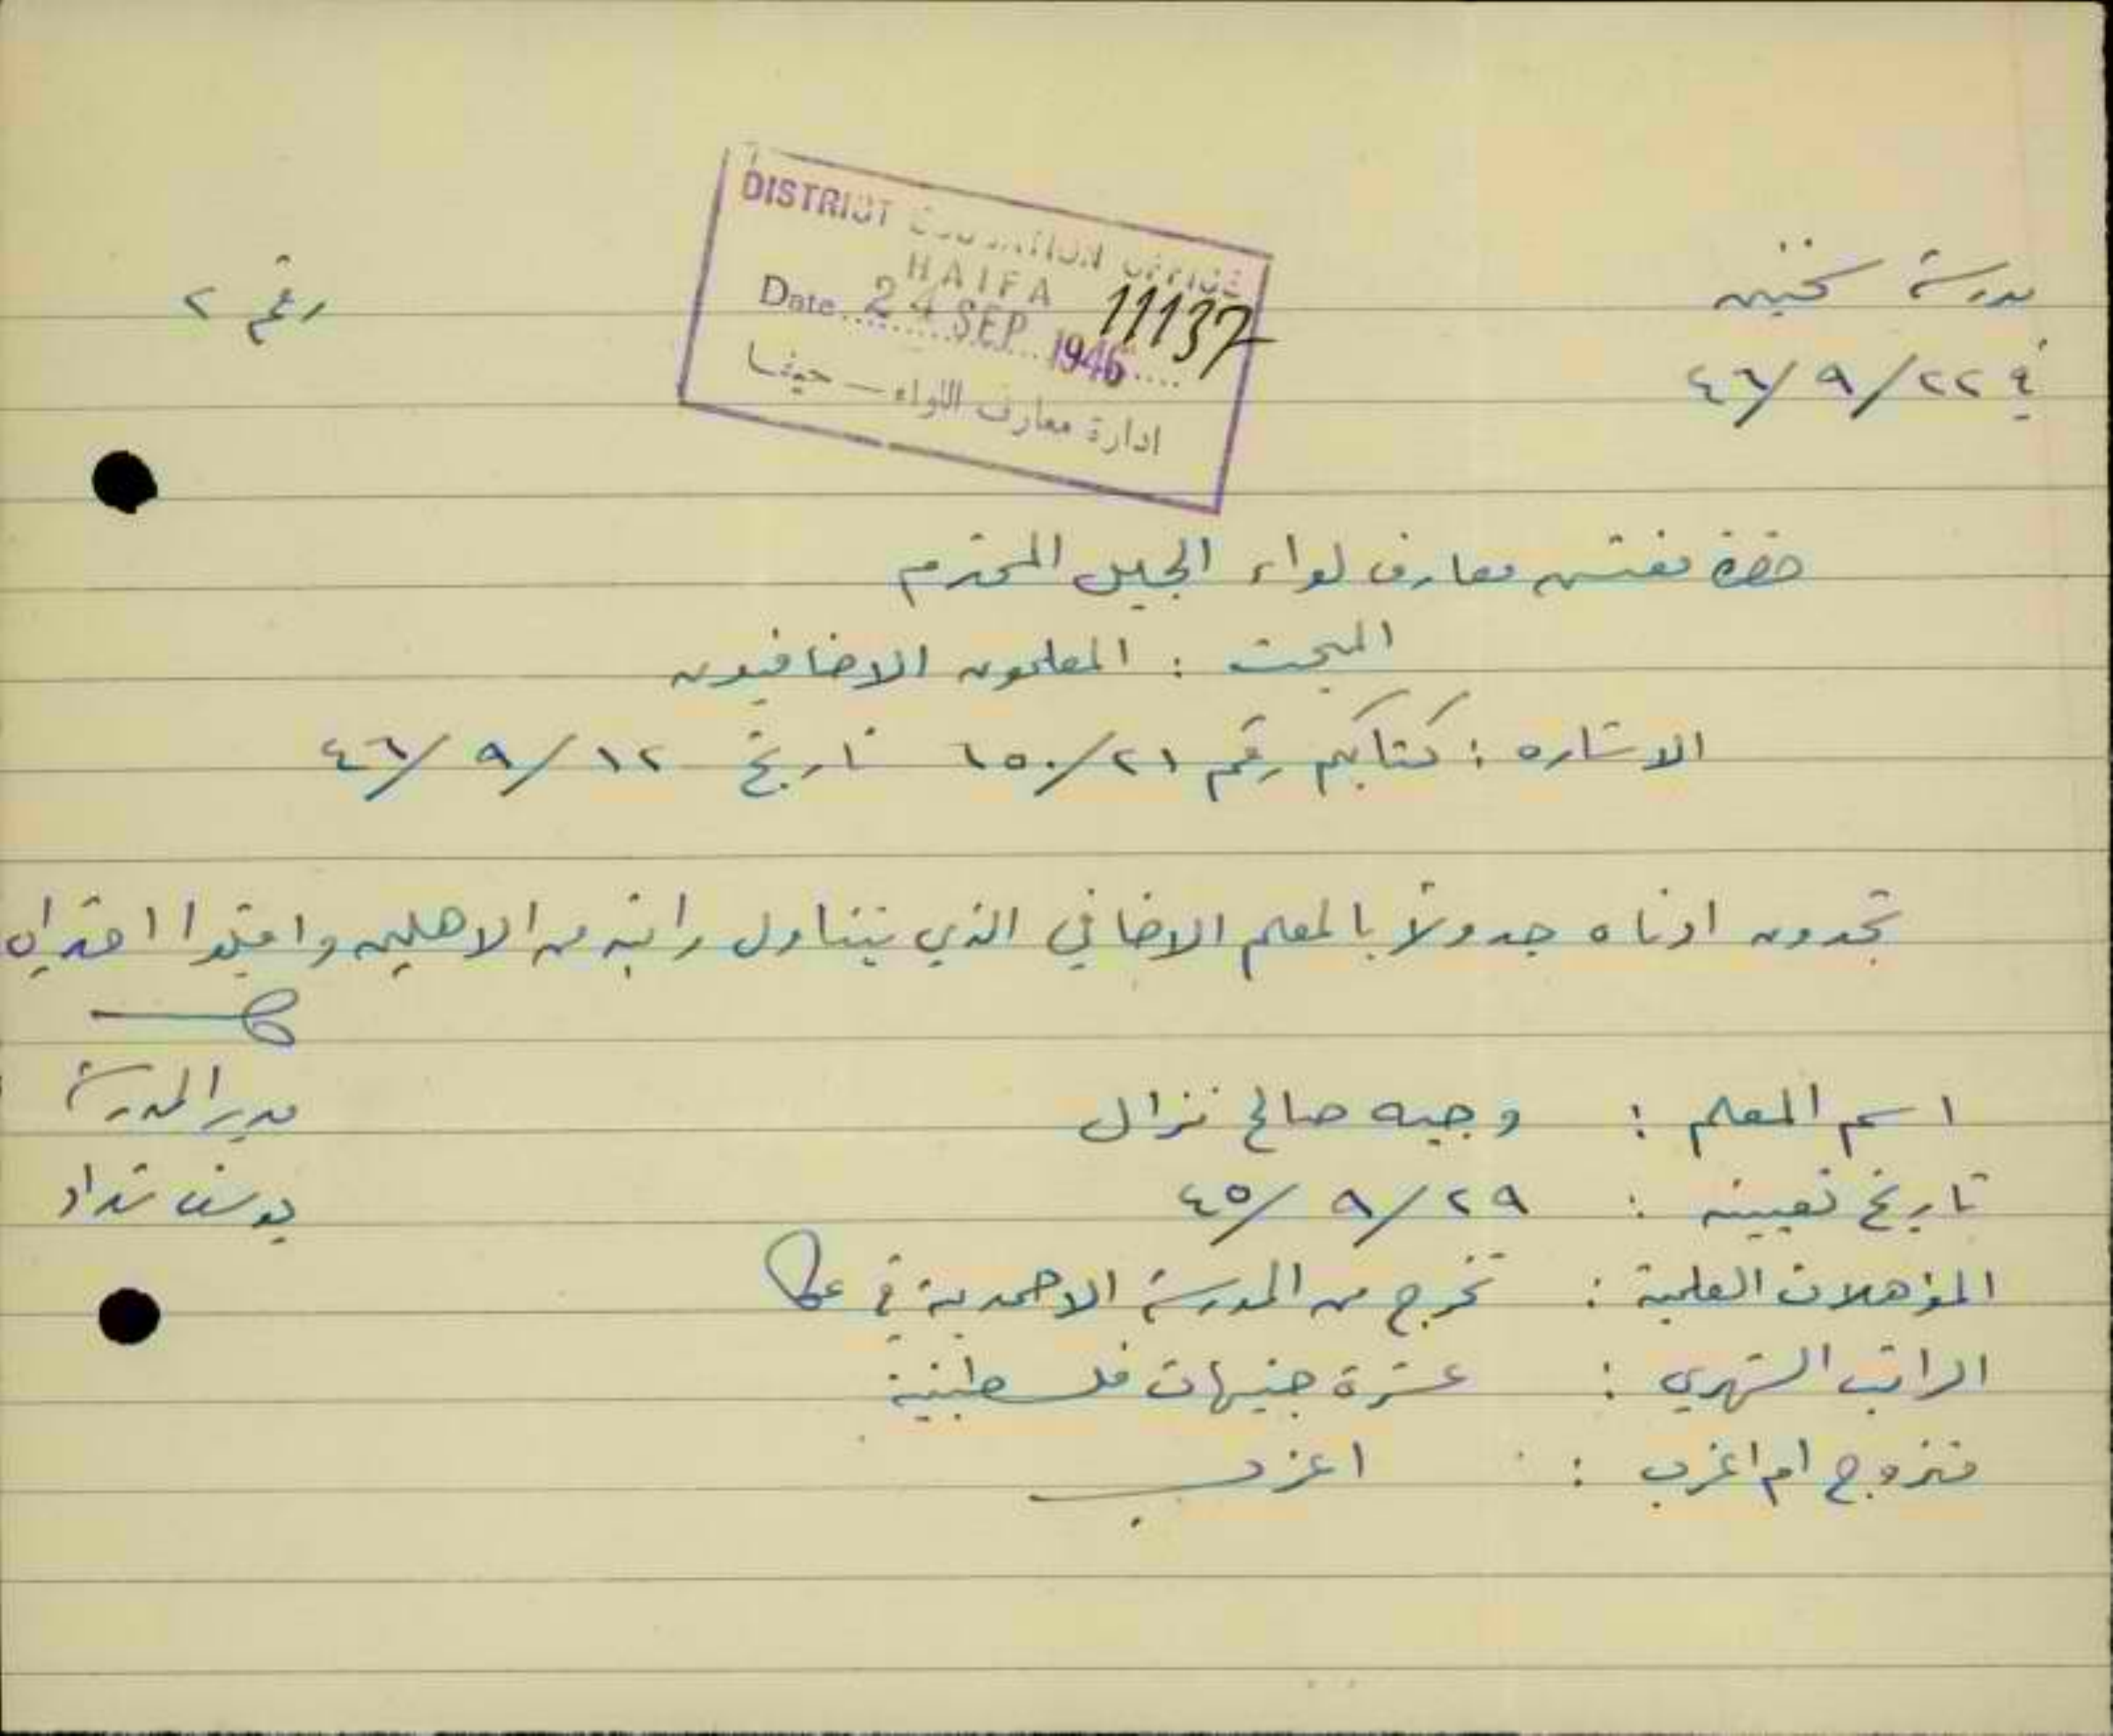 مدرسة سخنين
في ٢٢/٩/٤٦
رقم ٢
DISTRICT EDUCATION OFFICE
HAIFA
11137
Date 24 SEP 1946
ادارة معارف اللواء — حيفا
حضرة مفتش معارف لواء الجليل المحترم
المبحث : المعلمون الاضافيون
الاشاره : كتابكم رقم ٦٥٠/٢١ تاريخ ١٢/٩/٤٦
تجدون ادناه جدولاً بالمعلم الاضافي الذي يتناول راتبه من الاهلين واقبلوا احترامي
مدير المدرسة
يوسف شداد
اسم المعلم : وجيه صالح نزال
تاريخ تعيينه : ٢٩/٩/٤٥
المؤهلات العلمية : تخرج من المدرسة الاحمدية في عكا
الراتب الشهري : عشرة جنيهات فلسطينية
متزوج ام اعزب : اعزب